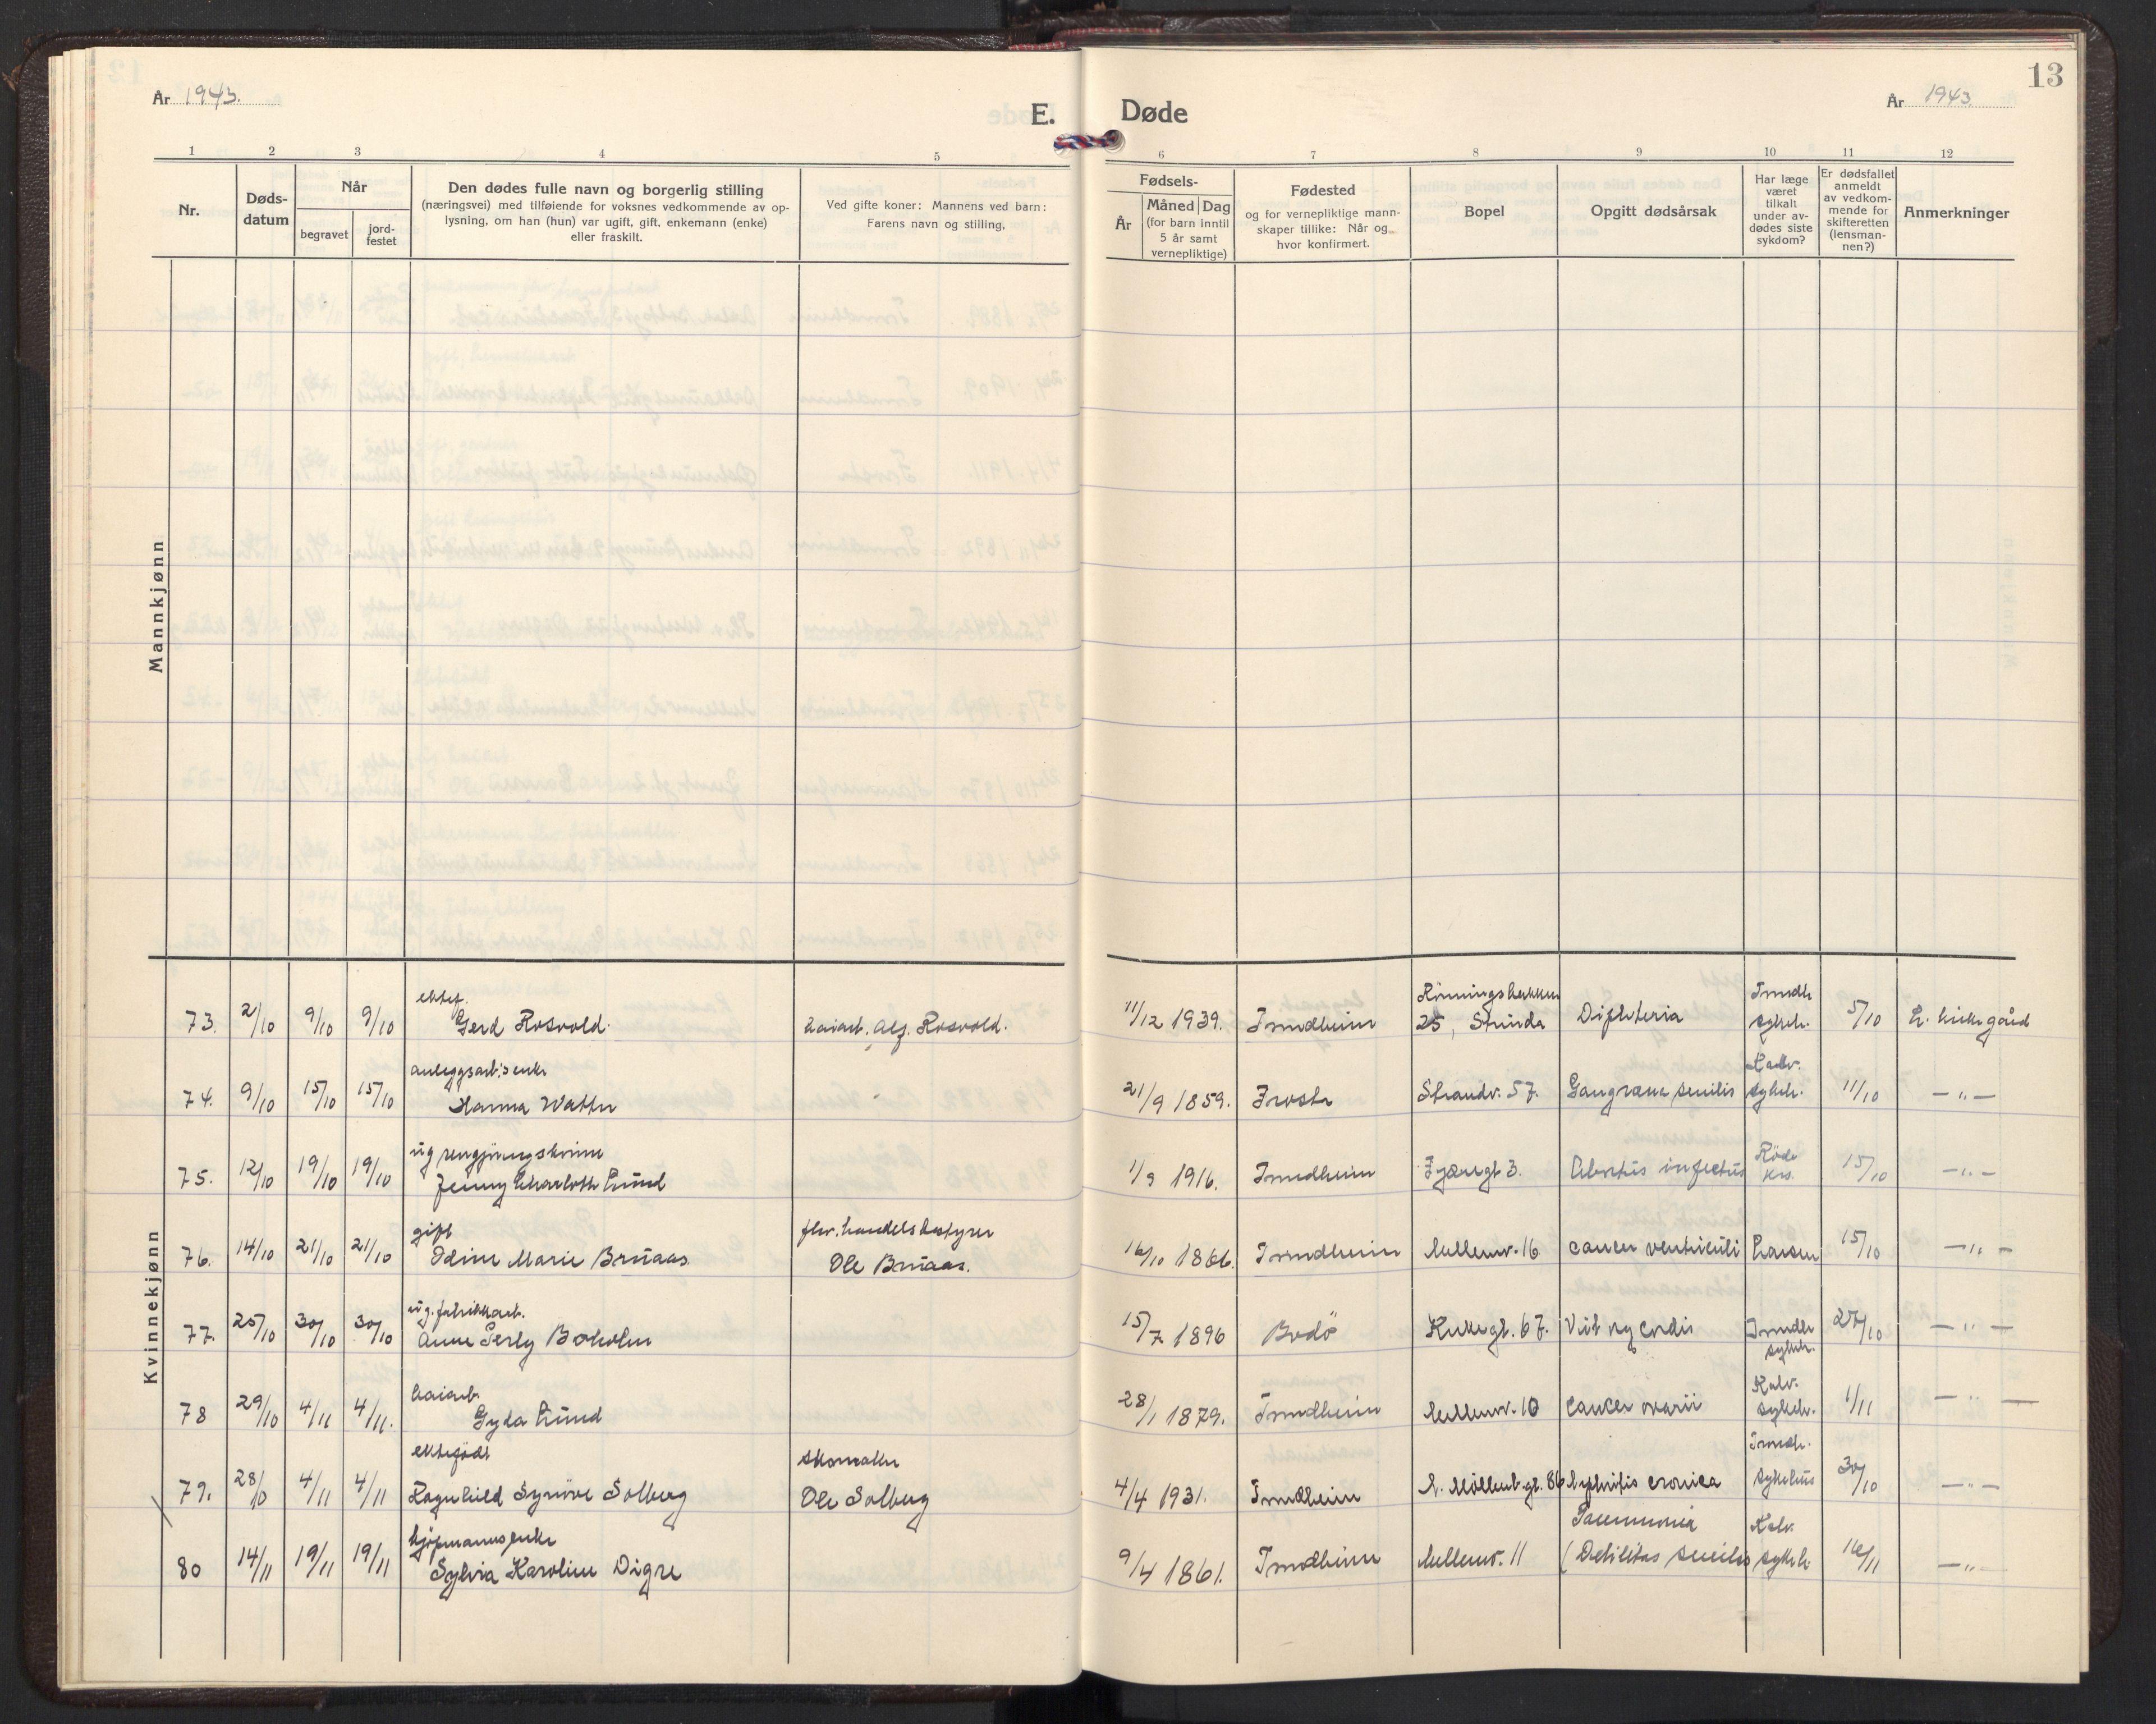 År 1943.
E.
Døde
År 1943.
13
1 2 3 4 5 6 7 8 9 10 11 12
Nr.
Døds-
datum
Når
begravet
jord-
festet
Den dødes fulle navn og borgerlig stilling
(næringsvei) med tilføiende for voksnes vedkommende av op-
lysning, om han (hun) var ugift, gift, enkemann (enke)
eller fraskilt.
Ved gifte koner: Mannens ved barn:
Farens navn og stilling.
Fødsels-
År
Måned Dag
(for barn inntil
5 år samt
vernepliktige)
Fødested
og for vernepliktige mann-
skaper tillike: Når og
hvor konfirmert.
Bopel
Opgitt dødsårsak
Har læge
været
tilkalt
under av-
dødes siste
sykdom?
Er dødsfallet
anmeldt
av vedkom-
mende for
skifteretten
(lensman-
nen?)
Anmerkninger
Mannkjønn
Kvinnekjønn
ektef.
73. 2/10 9/10 9/10 Gerd Rosvold. Alf. Rosvold. 11/12 1939. Trondheim 25, Strinda Difteria Trondh. sykeh. 5/10 L. kirkegård
anleggsarb.s enke
74. 9/10 15/10 15/10 Hanna Watter 21/9 1859. Frosta Strandv. 57. Gangræna senilis sykeh. 11/10 — " —
ug rengjøringskvinne
75. 12/10 19/10 19/10 Jenny Charlotte Lund 1/9 1916. Trondheim Fjæregt 3. Abortus infectus Røde Krs. 15/10 — " —
gift fhv. handelsbestyrer
76. 14/10 21/10 21/10 Odine Marie Bruaas Ole Bruaas. 16/10 1866. Trondheim Mellemv. 16 cancer ventriculi Larsen 15/10 — " —
ug. fabrikkarb.
77. 25/10 30/10 30/10 Anne Perly Boholm 15/7 1896 Bodö Kirkegt. 67. Vit. og cordis Trondh sykeh. 27/10 — " —
78 29/10 4/11 4/11. Gyda Lund 28/1 1879. Trondheim Mellemv. 10 cancer ovarii Kalv. sykeh. 1/11 — " —
ektefödt skomaker
79. 28/10 4/11 4/11 Ragnhild Synöve Solberg Ole Solberg 4/4 1931. Trondheim N. Möllenb.gt. 86 Nephritis cronica Trondh. sykehus 30/10 — " —
kjöpmannsenke Pneumonia
80 14/11 19/11 19/11 Sylvia Karoline Digre 9/4 1861. Trondheim Mellemv. 11 (Debilitas senilis Kalv. sykeh. 16/11 — " —